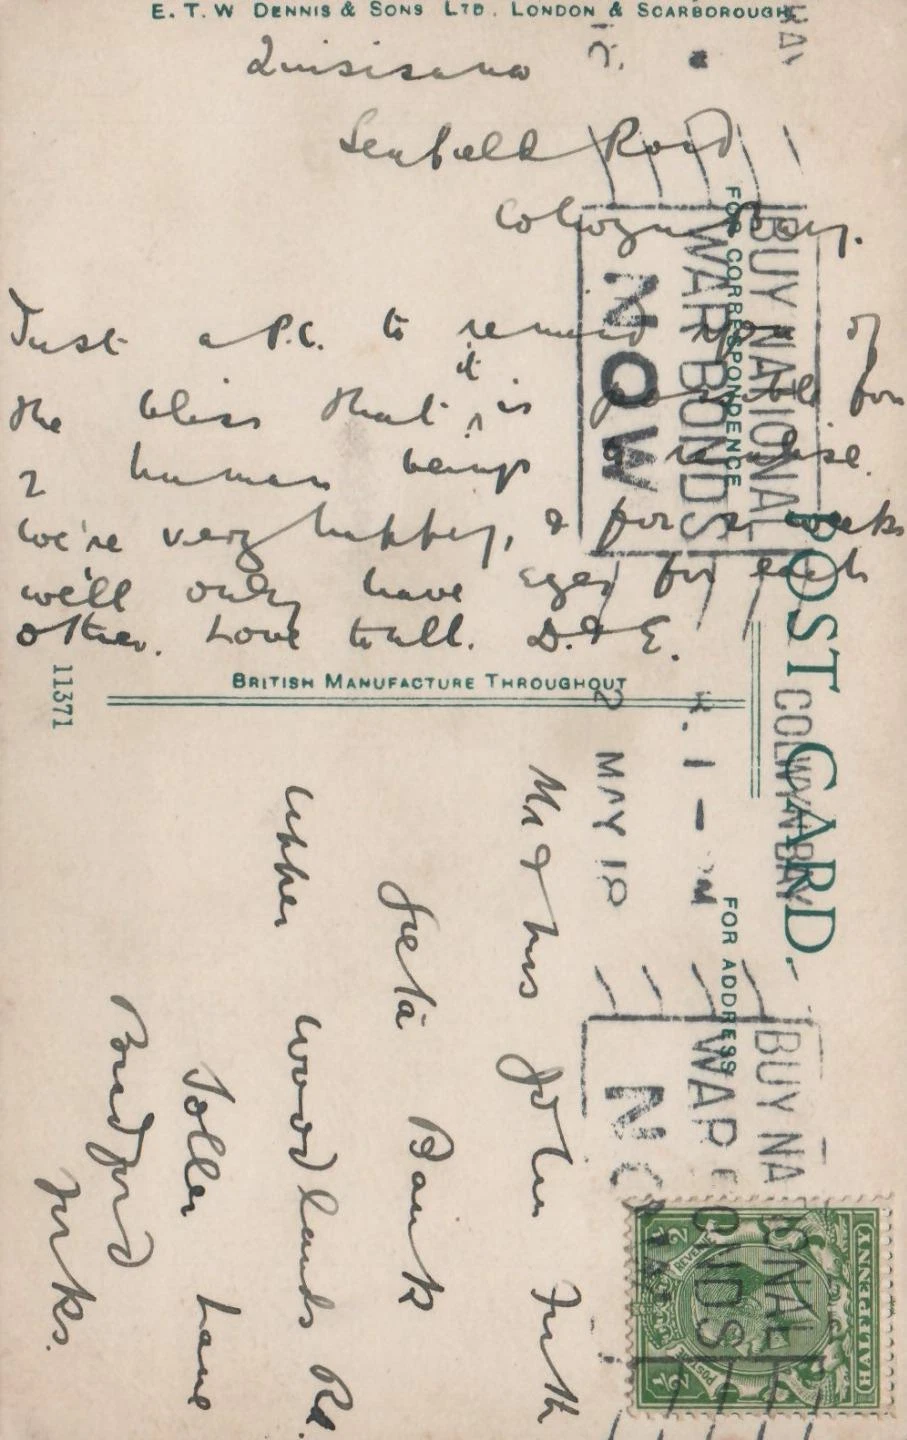 E. T. W DENNIS & SONS LTD. LONDON & SCARBOROUGH
Quisisana
Seafield Road
Colwyn Bay.
Just a P.C. to remind you of
the bliss that it is possible for
2 human beings to realise.
We're very happy, & for 2 weeks
we'll only have eyes for each
other. Love to all. D. & E.
11371
BRITISH MANUFACTURE THROUGHOUT
POST CARD.
FOR CORRESPONDENCE
FOR ADDRESS
BUY NATIONAL
WAR BONDS
NOW
COLWYN BAY
2 MAY 18
BUY NATIONAL
WAR BONDS
NO
Mr & Mrs John Firth
Bank
Upper Woodlands Rd.
Toller Lane
Bradford
Yorks.
POSTAGE
REVENUE
HALFPENNY
1/2
1/2